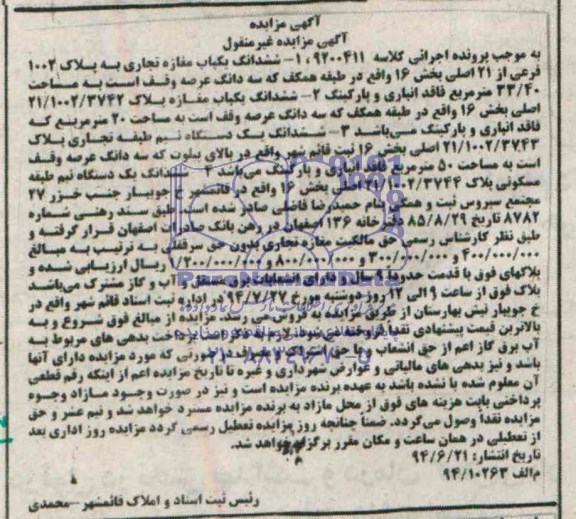 آگهی مزایده
آگهی مزایده غیرمنقول
به موجب پرونده اجرائی کلاسه ۱۰۹۲۰۰۴۱۱- ششدانگ یکباب مغازه تجاری به پلاک ۱۰۰۲
فرعی از ۲۱ اصلی بخش ۱۶ واقع در طبقه همکف که سه دانگ عرصه وقف است به مساحت
۳۳/۴۰ مترمربع فاقد انباری و پارکینگ ۲- ششدانگ یکباب مغازه پلاک ۲۱/۱۰۰۲/۳۷۴۲
اصلی بخش ۱۶ واقع در طبقه همکف که سه دانگ عرصه وقف است به مساحت ۲۰ مترمربع که
فاقد انباری و پارکینگ می‌باشد ۳- ششدانگ یک دستگاه نیم طبقه تجاری پلاک
۲۱/۱۰۰۲/۳۷۴۳ اصلی بخش ۱۶ ثبت قائم شهر واقع در بالای پیلوت که سه دانگ عرصه وقف
است به مساحت ۵۰ مترمربع فاقد انباری و پارکینگ می‌باشد ۴- ششدانگ یک دستگاه نیم طبقه
مسکونی پلاک ۲۱/۱۰۰۲/۳۷۴۴ اصلی بخش ۱۶ واقع در قائمشهر خ جویبار جنب خزر ۲۷
مجتمع سیروس ثبت و همگی بنام حمیدرضا فاضلی صادر شده است طبق سند رهنی شماره
۸۷۸۲ تاریخ ۸۵/۸/۲۹ دفترخانه ۱۳۶ اصفهان در رهن بانک صادرات اصفهان قرار گرفته و
طبق نظر کارشناس رسمی حق مالکیت مغازه تجاری بدون حق سرقفلی به ترتیب به مبالغ
۴۰۰/۰۰۰/۰۰۰ و ۳۰۰/۰۰۰/۰۰۰ و ۸۰۰/۰۰۰/۰۰۰ و ۲۰۰/۰۰۰/۰۰۰ ریال ارزیابی شده و
پلاکهای فوق با قدمت حدودا ۹ سال و دارای انشعابات برق مستقل و آب و گاز مشترک می‌باشد
پلاک فوق از ساعت ۹ الی ۱۲ روز دوشنبه مورخ ۹۴/۷/۲۷ در اداره ثبت اسناد قائم شهر واقع در
خ جویبار نبش بهارستان از طریق مزایده به فروش می رسد. مزایده از مبالغ فوق شروع و به
بالاترین قیمت پیشنهادی نقدا فروخته می شود. لازم به ذکر است پرداخت بدهی های مربوط به
آب برق گاز اعم از حق انشعاب و یا حق اشتراک و مصرف در صورتی که مورد مزایده دارای آنها
باشد و نیز بدهی های مالیاتی و عوارض شهرداری و غیره تا تاریخ مزایده اعم از اینکه رقم قطعی
آن معلوم شده یا نشده باشد به عهده برنده مزایده است و نیز در صورت وجود مازاد وجوه
پرداختی بابت هزینه های فوق از محل مازاد به برنده مزایده مسترد خواهد شد و نیم عشر و حق
مزایده نقداً وصول می‌گردد. ضمناً چنانچه روز مزایده تعطیل رسمی گردد مزایده روز اداری بعد
از تعطیلی در همان ساعت و مکان مقرر برگزار خواهد شد.
تاریخ انتشار: ۹۴/۶/۲۱
م/الف ۹۴/۱۰۲۶۳
رئیس ثبت اسناد و املاک قائمشهر – محمدی
ParsNamadData
۰۲۱-۸۸۳۴۹۶۷۰